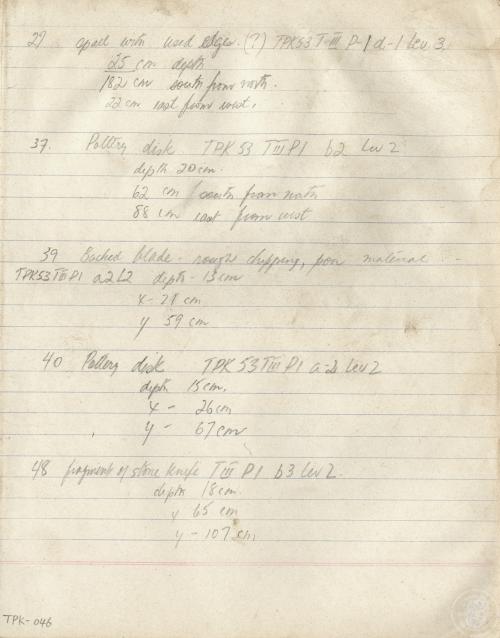 27 spall with used edges. (?) TPK53 T-III P-1 d-1 Lev 3.
25 cm depth
182 cm south from north.
22 cm east from west.
37. Pottery disk TPK 53 TIII P1 b2 Lev 2
depth 20 cm.
62 cm south from north
88 cm east from west
39 Backed blade - rough chipping, poor material
TPK53 TIII P1 a2 L2 depth - 13 cm
x - 21 cm
y 59 cm
40 Pottery disk TPK 53 TIII P1 a-2 Lev 2
depth 15 cm.
x - 26 cm
y - 67 cm
48 fragment of stone knife TIII P1 b3 Lev 2.
depth 18 cm.
x 65 cm
y - 107 cm
TPK-046